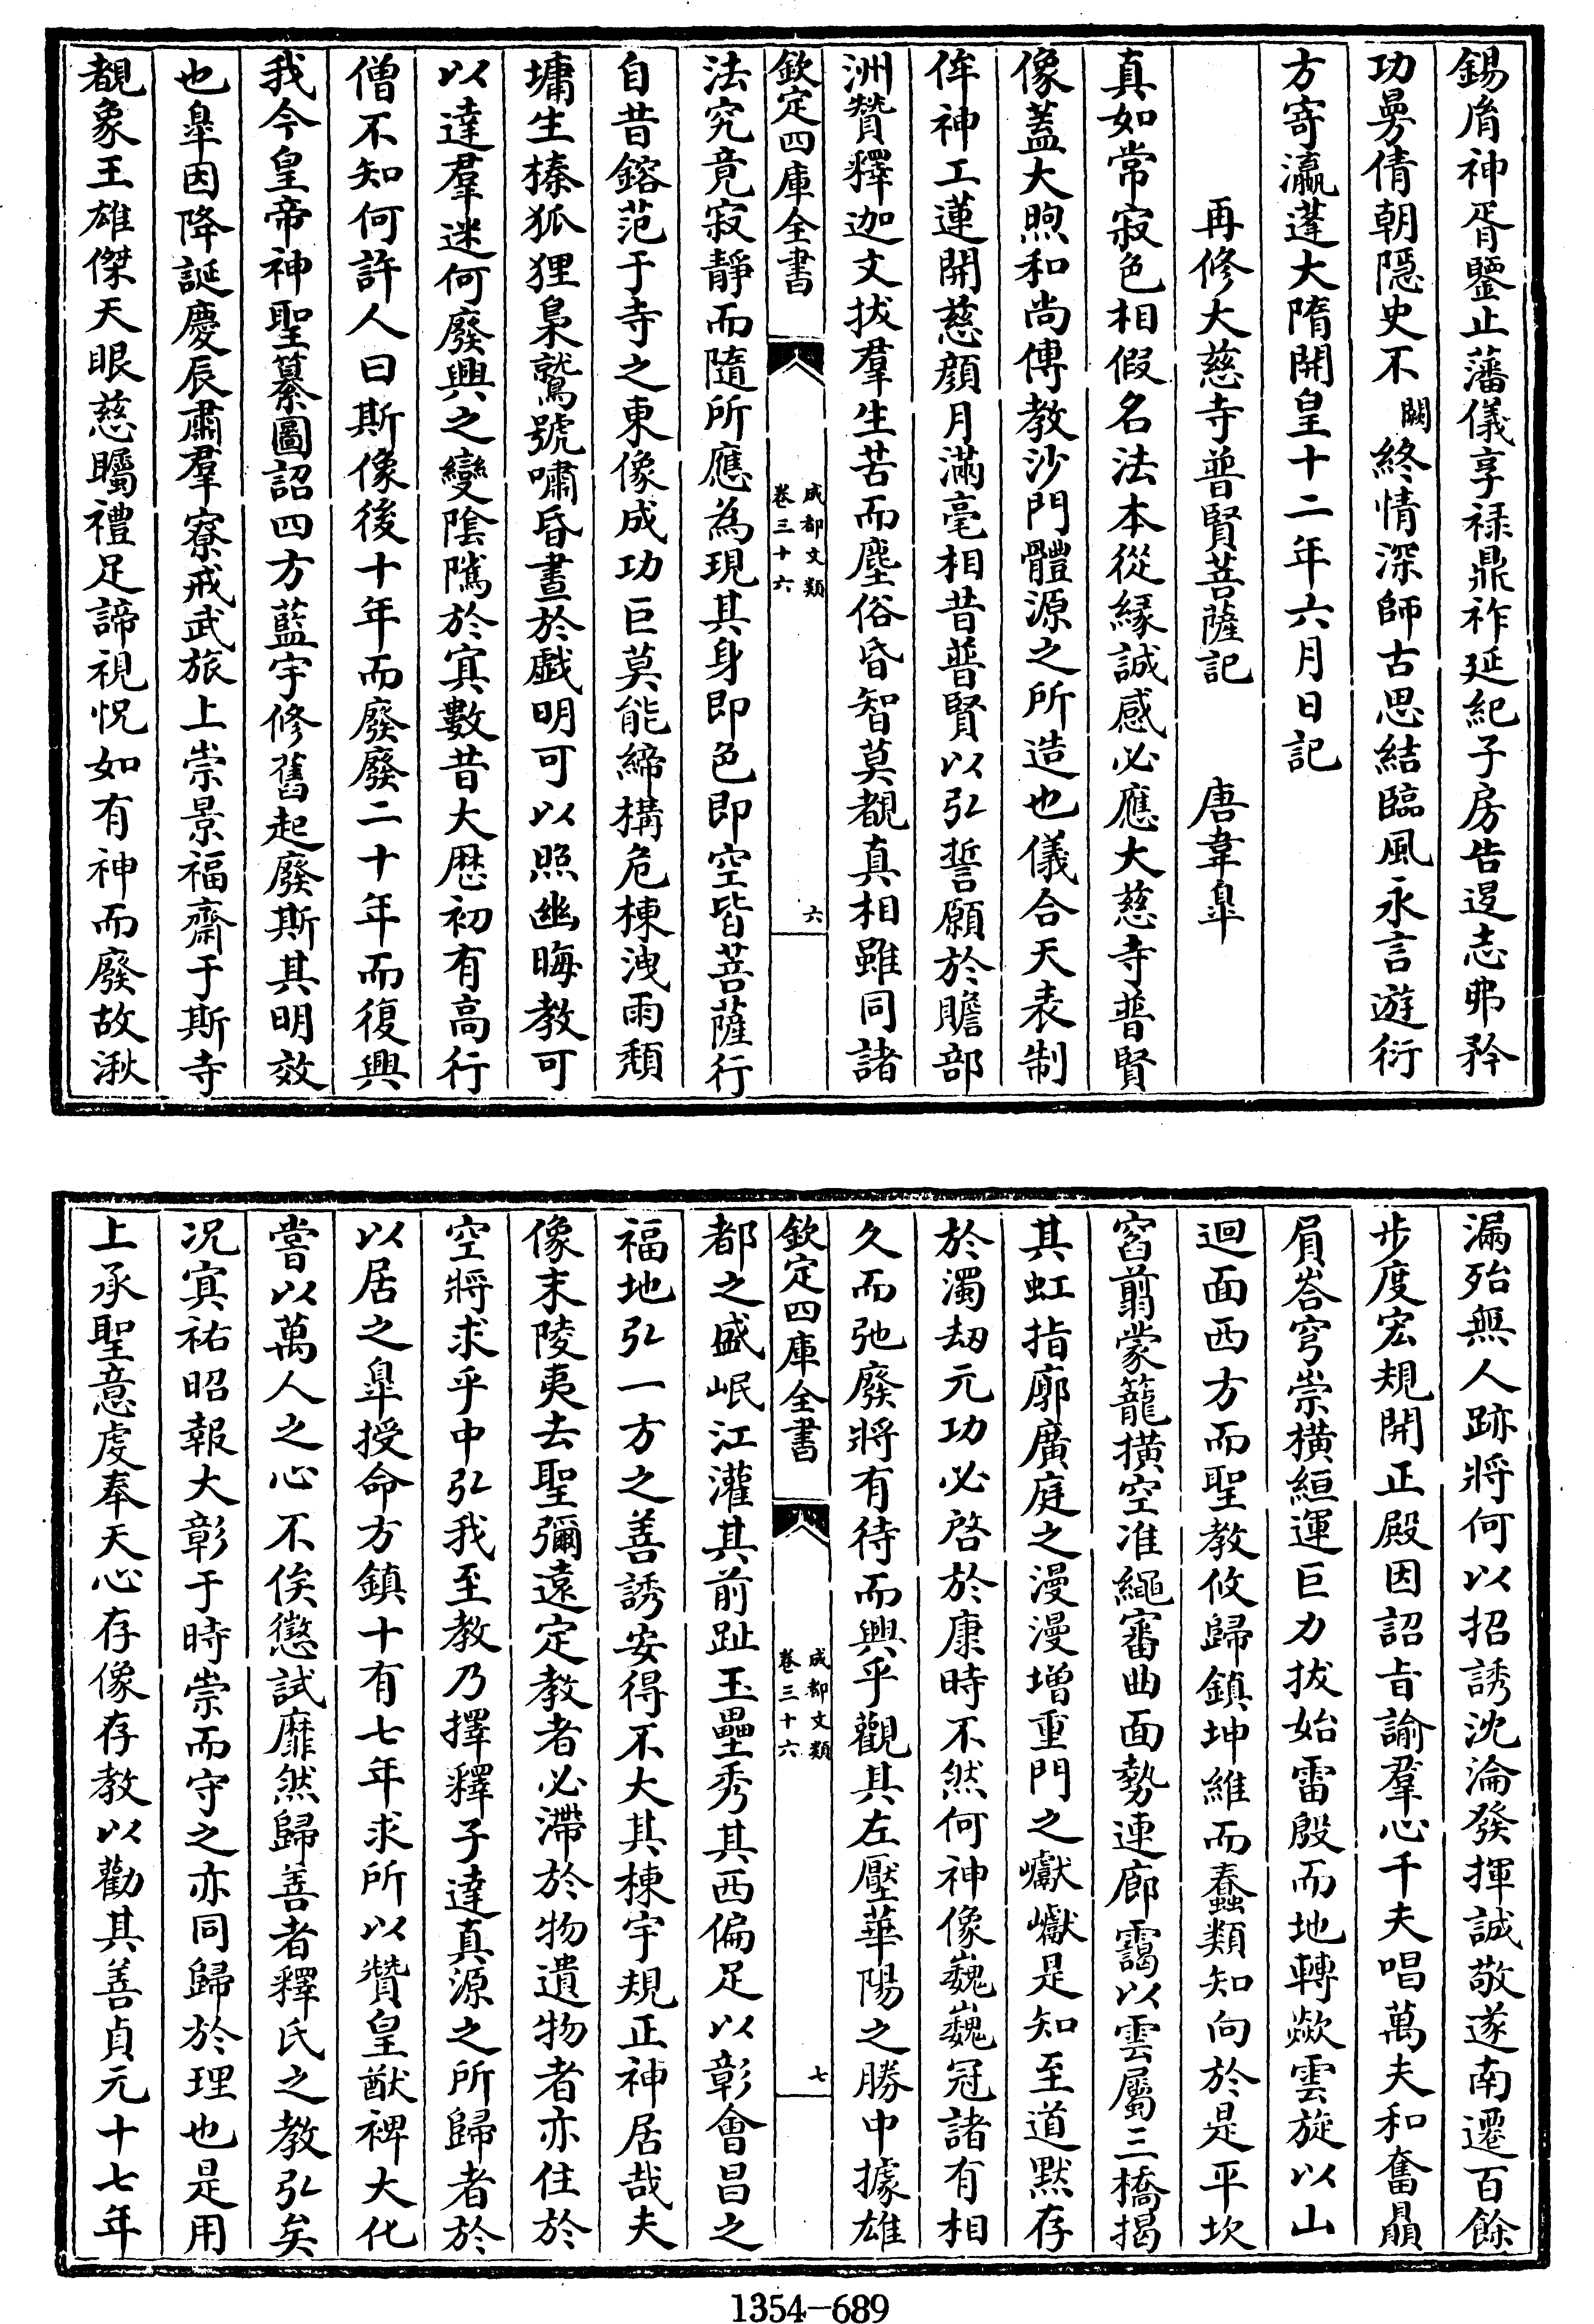 錫胥神胥鑒止藩儀享禄鼎祚延紀子房告退志弗矜
功曼倩朝隱史不闕終情深師古思結臨風永言遊衍
方寄瀛蓬大隋開皇十二年六月日記
再修大慈寺普賢菩薩記　唐韋臯
真如常寂色相假名法本從緣誠感必應大慈寺普賢
像蓋大煦和尚傳教沙門體源之所造也儀合天表制
侔神工蓮開慈顔月滿毫相昔普賢以弘誓願於贍部
洲贊釋迦文拔羣生苦而塵俗昏智莫覩真相雖同諸
欽定四庫全書
成都文類
卷三十六
六
法究竟寂靜而隨所應為現其身即色即空皆菩薩行
自昔鎔范于寺之東像成功巨莫能締構危棟洩雨頽
墉生榛狐狸梟鷲號嘯昏晝於戲明可以照幽晦教可
以達羣迷何廢興之變隂隲於冥數昔大厯初有高行
僧不知何許人曰斯像後十年而廢廢二十年而復興
我今皇帝神聖纂圖詔四方藍宇修舊起廢斯其明效
也臯因降誕慶辰肅羣寮戒武旅上崇景福齋于斯寺
覩象王雄傑天眼慈矚禮足諦視怳如有神而廢故湫
漏殆無人跡將何以招誘沈淪發揮誠敬遂南遷百餘
步度宏規開正殿因詔㫖諭羣心千夫唱萬夫和奮贔
屓峉穹崇橫絙運巨力拔始雷殷而地轉歘雲旋以山
迴面西方而聖教攸歸鎮坤維而蠢類知向於是平坎
窞翦蒙籠横空准繩審曲面勢連廊靄以雲屬三橋揭
其虹指廓廣庭之漫漫增重門之巘巘是知至道黙存
於濁劫元功必啓於康時不然何神像巍巍冠諸有相
久而弛廢將有待而興乎觀其左壓華陽之勝中據雄
欽定四庫全書
成都文類
卷三十六
七
都之盛岷江灌其前趾玉壘秀其西偏足以彰會昌之
福地弘一方之善誘安得不大其棟宇規正神居哉夫
像末陵夷去聖彌遠定教者必滯於物遺物者亦住於
空將求乎中弘我至教乃擇釋子達真源之所歸者於
以居之臯授命方鎮十有七年求所以贊皇猷裨大化
嘗以萬人之心不俟懲試靡然歸善者釋氏之教弘矣
况冥祐昭報大彰于時崇而守之亦同歸於理也是用
上承聖意虔奉天心存像存教以勸其善貞元十七年
1354-689